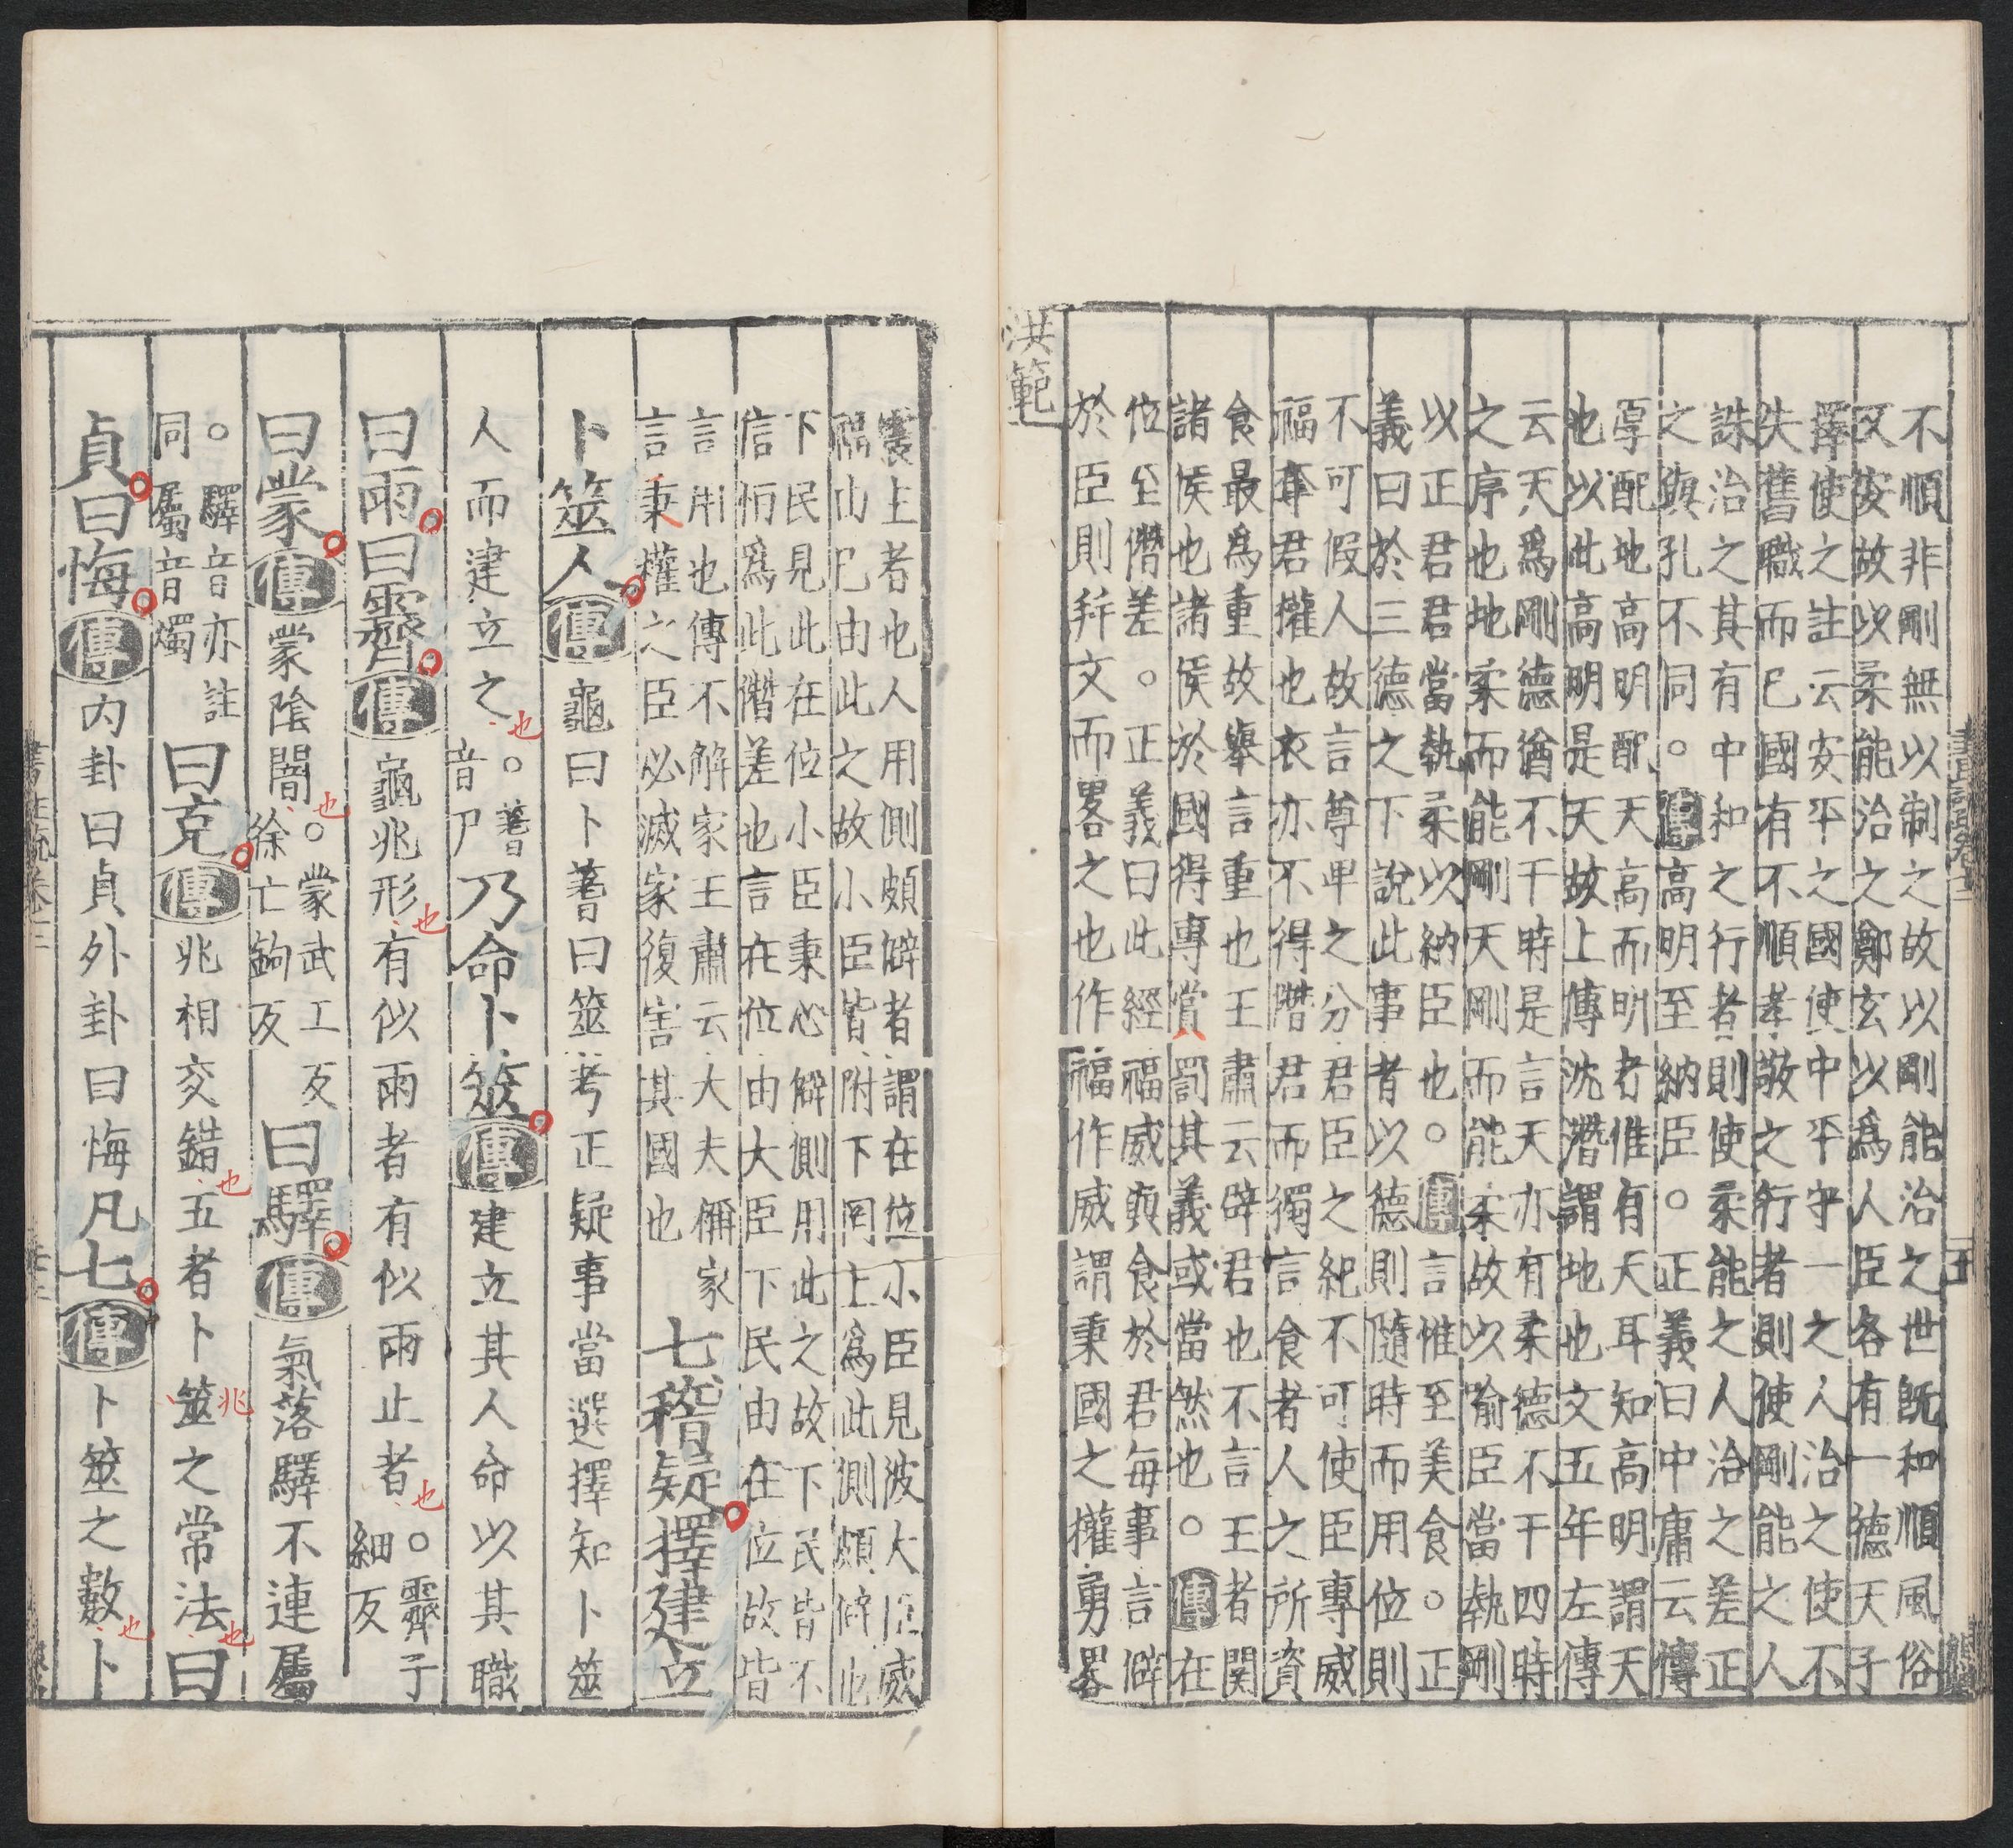 不順非剛無以制之故以剛能治之世既和順風俗
又安故以柔能治之鄭玄以爲人臣各有一德天子
擇使之註云安平之國使中平守一之人治之使不
失舊職而已國有不順孝敬之行者則使剛能之人
誅治之其有中和之行者則使柔能之人治之差正
之與孔不同。傳高明至納臣。正義曰中庸云博
厚配地高明配天高而明者惟有天耳知高明謂天
也以此高明是天故上傳沈潛謂地也文五年左傳
云天爲剛德猶不干時是言天亦有柔德不干四時
之序也地柔而能剛天剛而能柔故以喻臣當執剛
以正君君當執柔以納臣也。傳言惟至美食。正
義曰於三德之下說此事者以德則隨時而用位則
不可假人故言尊卑之分君臣之紀不可使臣專威
福奪君權也衣亦不得僭君而獨言食者人之所資
食最爲重故舉言重也王肅云辟君也不言王者関
諸侯也諸侯於國得專賞罰其義或當然也。傳在
位至僭差。正義曰此經福威與食於君每事言辟
於臣則并文而畧之也作福作威謂秉國之權勇畧
洪範
震上者也人用側頗僻者謂在位小臣見彼大臣威
福由已由此之故小臣皆附下罔上爲此側頗僻也
下民見此在位小臣秉心僻側用此之故下民皆不
信恒爲此僭差也言在位由大臣下民由在位故皆
言用也傳不解家王肅云大夫稱家
言秉權之臣必滅家復害其國也
七稽疑擇建立
卜筮人傳龜曰卜蓍曰筮考正疑事當選擇知卜筮
人而建立之也。蓍音尸乃命卜筮傳建立其人命以其職
曰雨曰霽傳龜兆形也有似雨者有似雨止者也。霽子細反
曰蒙傳蒙陰闇也。蒙武工反徐亡鉤反曰驛傳氣落驛不連屬
。驛音亦註同屬音燭曰克傳兆相交錯也五者卜筮兆之常法也曰
貞曰悔傳内卦曰貞外卦曰悔凡七傳卜筮之數也卜